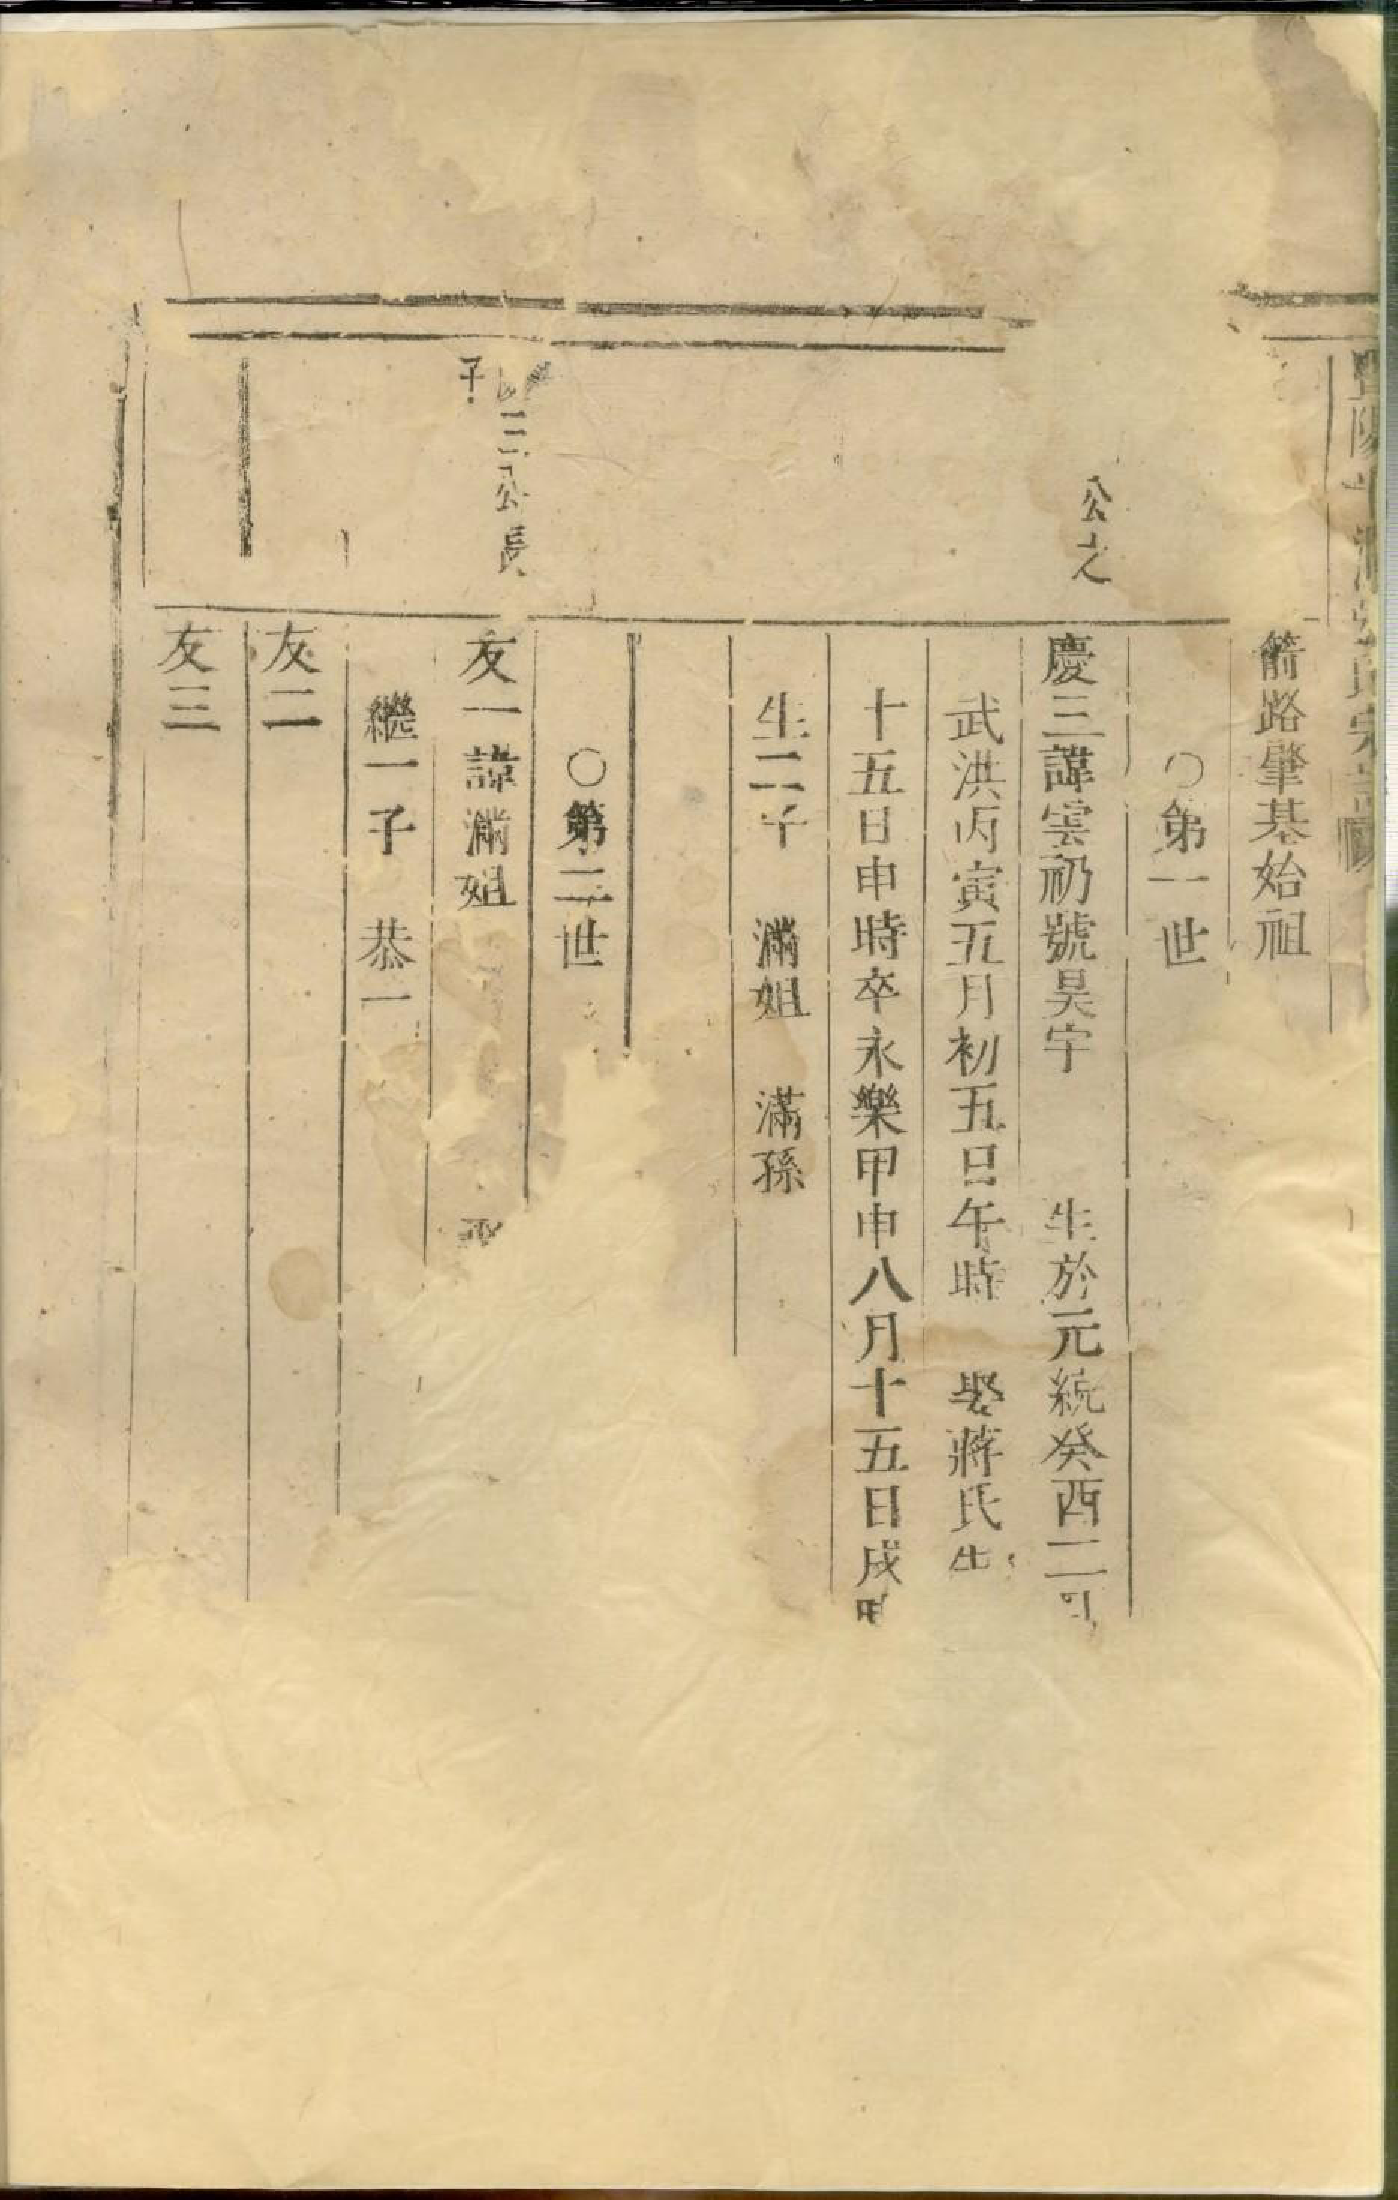 箭路肇基始祖
○第一世
公之
慶三諱雲礽號昊宇 生於元統癸酉二
武洪丙寅五月初五日午時 娶蔣氏生
十五日申時卒永樂甲申八月十五日戌時
生二子 滿姐 滿孫
○第二世
三公長
子
友一諱滿姐
繼一子 恭一
友二
友三